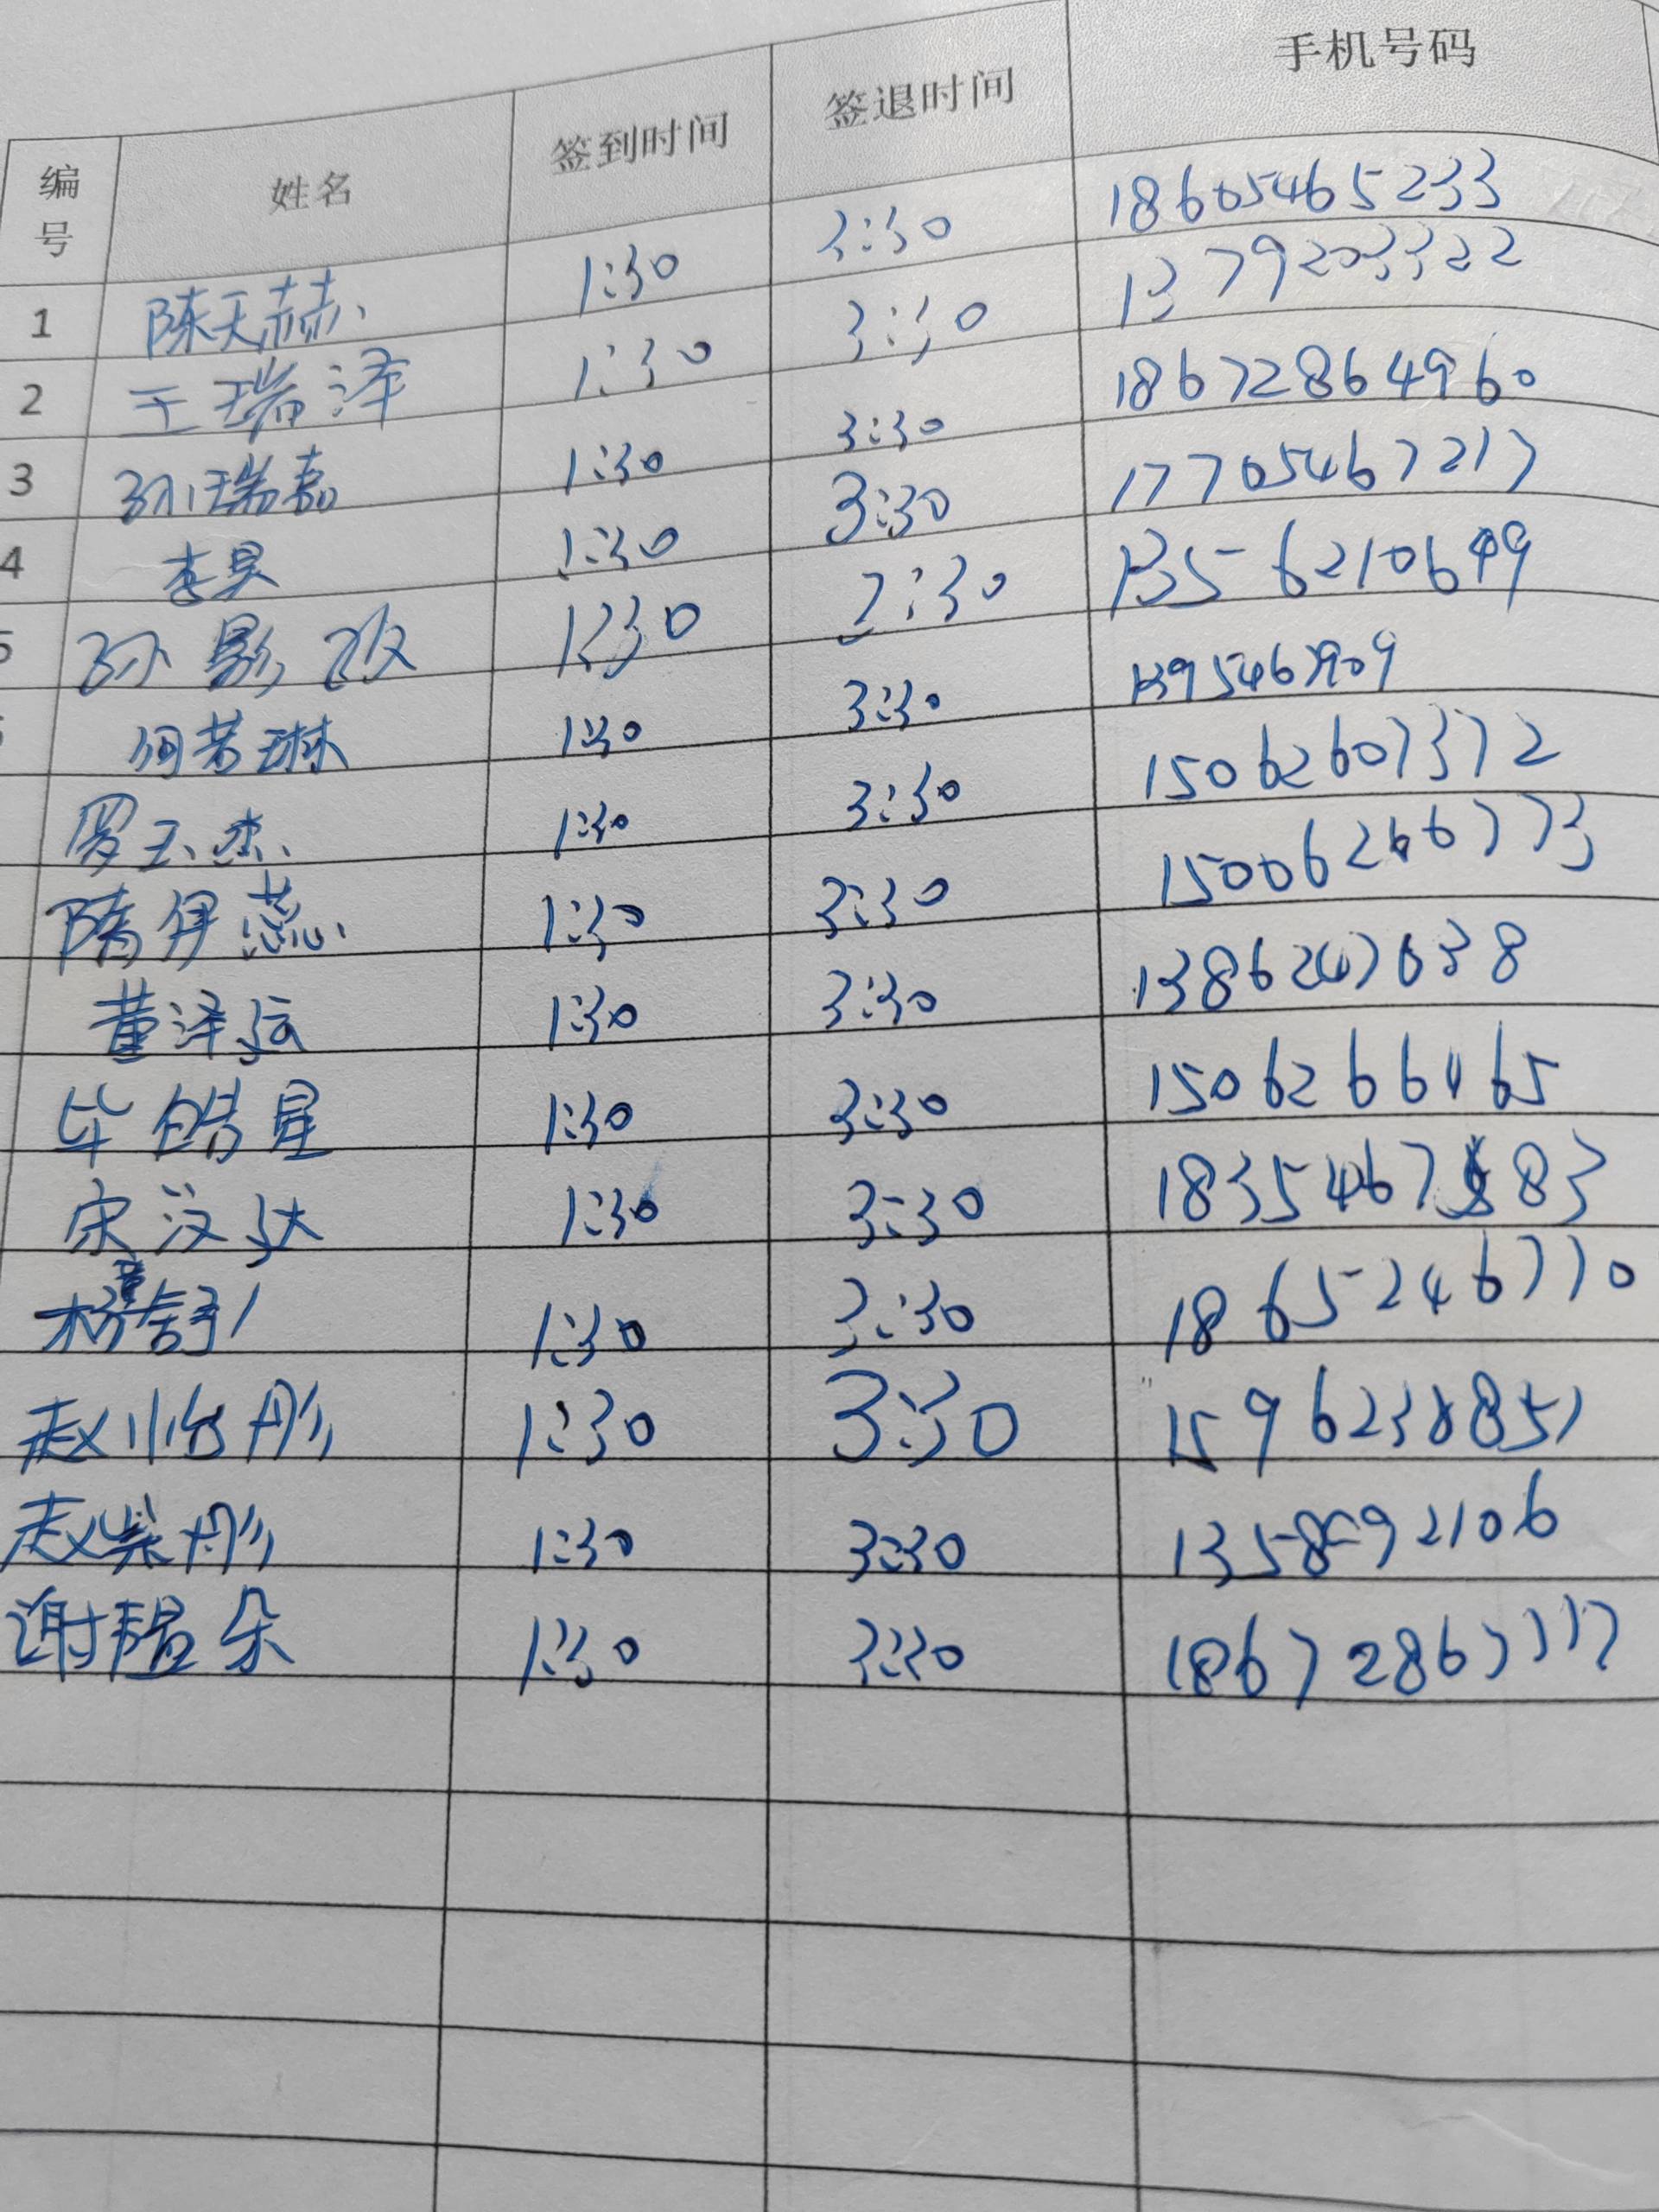 编号 姓名 签到时间 签退时间 手机号码
1 陈天赫 1:30 3:30 18605465233
2 王瑞泽 1:30 3:30 13792033322
3 孙瑞嘉 1:30 3:30 18672864960
4 李昊 1:30 3:30 17705467217
5 孙影 1:30 3:30 13562106499
何若琳 1:30 3:30
罗玉杰 1:30 3:30 15062607372
隋伊蕊 1:30 3:30 15006266773
董泽运 1:30 3:30
毕皓星 1:30 3:30
宋汶达 1:30 3:30
杨舒 1:30 3:30 18652467770
赵怡彤 1:30 3:30 15962388851
赵紫彤 1:30 3:30 1358992106
谢韫朵 1:30 3:30